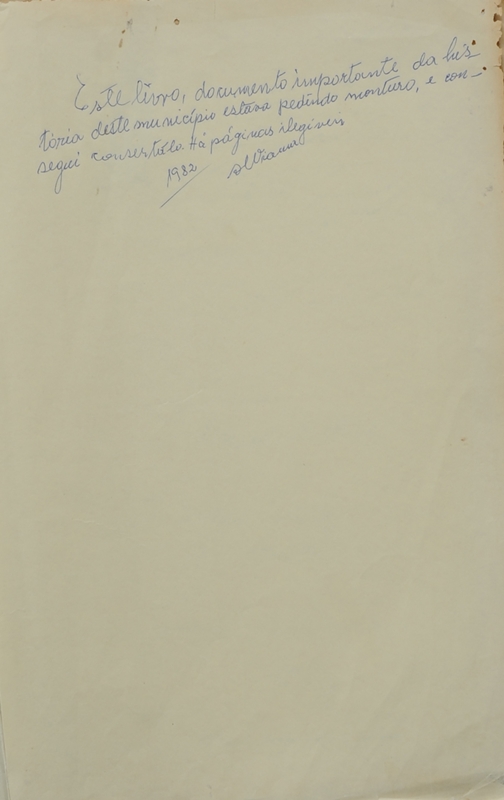 Este livro, documento importante da his-
tória deste município estava pedindo monturo, e con-
segui consertá-lo. Há páginas ilegíveis
1982